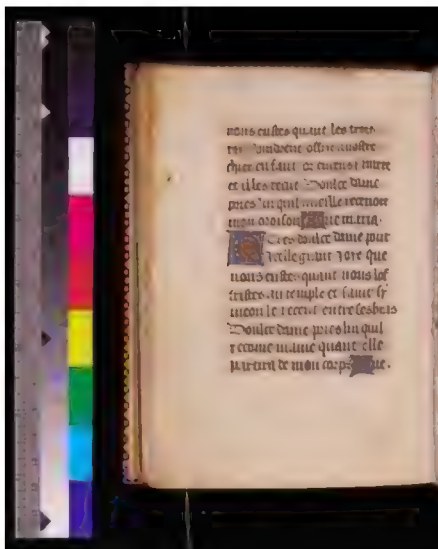 vous eustes quant les trois
roy vindrent offrir a vostre
chier enfant or encens mirre
et il les receut Doulce dame
pries luy quil vueille recevoir
mon oroison Ave maria.
Tres doulce dame pour
icelle grant joye que
vous eustes quant vous lof
fristes au temple et saint sy
meon le receut entre ses bras
Doulce dame pries luy quil
recoive mame quant elle
partira de mon corps Ave.